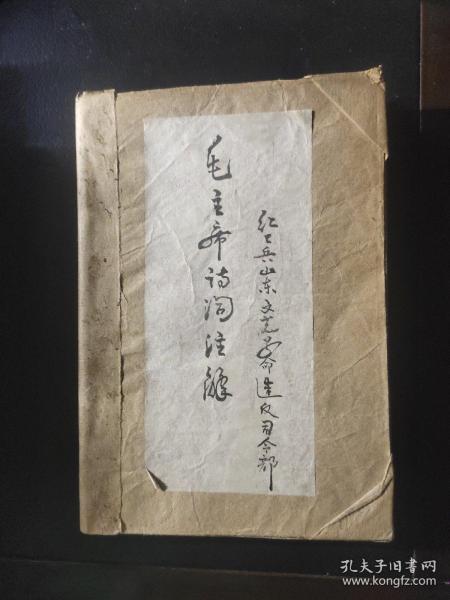 毛主席诗词注解
红卫兵山东文艺革命造反司令部
孔夫子旧书网
www.kongfz.com